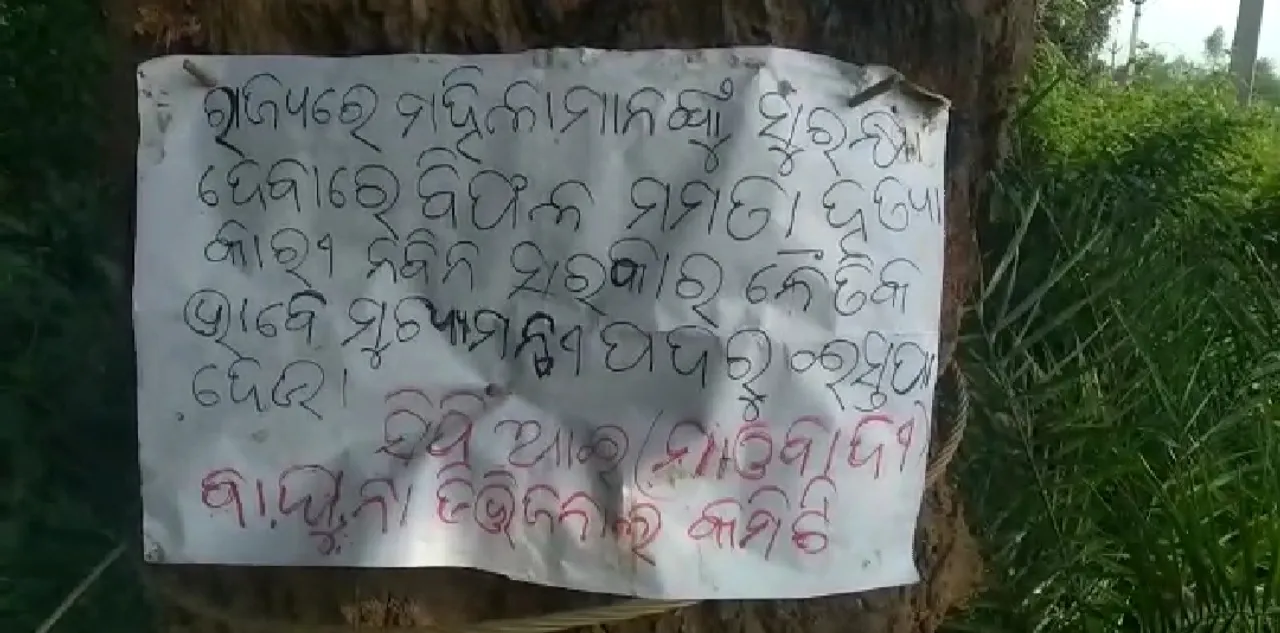 ରାଜ୍ୟରେ ମହିଳାମାନଙ୍କୁ ସୁରକ୍ଷା
ଦେବାରେ ବିଫଳ ମମତା ହତ୍ୟା
କାରୀ ନବିନ ସରକାର ନୈତିକ
ଭାବେ ମୁଖ୍ୟମନ୍ତ୍ରୀ ପଦରୁ ରେସ୍ତଫା
ଦେଉ।
ସିପିଆଇ (ମାଓବାଦୀ)
ବା.ଘୁ.ନା ଡିଭିଜନାଲ କମିଟି